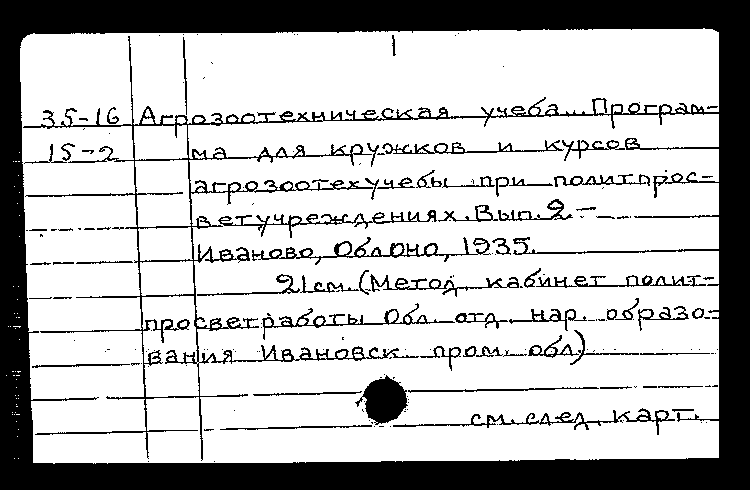 35-16 Агрозоотехническая учеба... Програм-
15-2 ма для кружков и курсов
агрозоотехучебы при политпрос-
ветучреждениях. Вып. 2.—
Иваново, Облоно, 1935.
21 см. (Метод. кабинет полит-
просветработы Обл. отд. нар. образо-
вания Ивановск. пром. обл.)
см. след. карт.